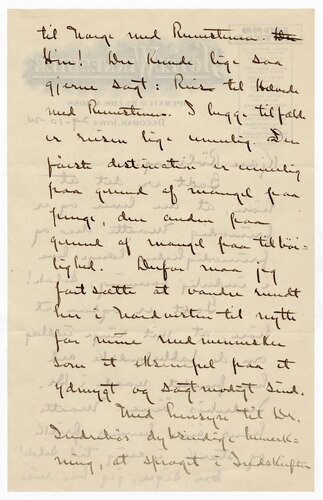 til Norge med Runestenen. Du
Hm! Du kunde lige saa
gjerne sagt: Reis til Helvede
med Runestenen. I begge tilfælde
er reisen lige umulig. Den
første destination er umulig
paa grund af mangel paa
penge, den anden paa
grund af mangel paa tilbøi-
lighed. Derfor maa jeg
fortsætte at vandre rundt
her i Nordvesten til nytte
for mine medmennesker
som et eksempel paa et
ydmygt og sagtmodigt sind.
Med hensyn til Dr.
Indrebøs dybsindige bemærk-
ning, at sproget i Indskriften